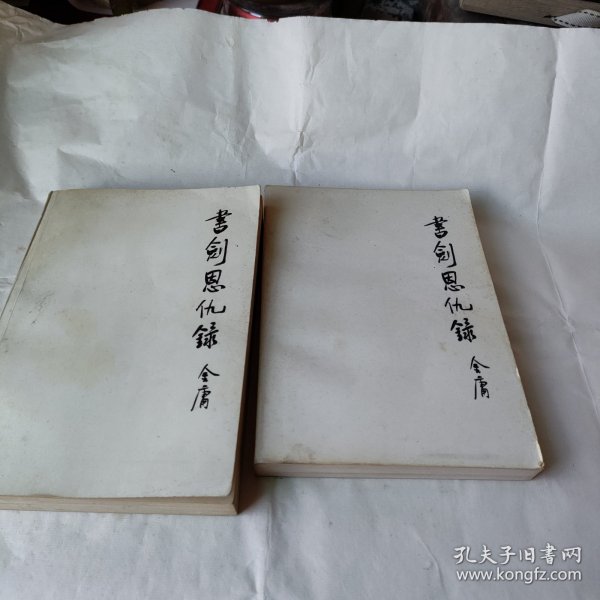 書劍恩仇錄
金庸
書劍恩仇錄
金庸
孔夫子旧書网
www.kongfz.com